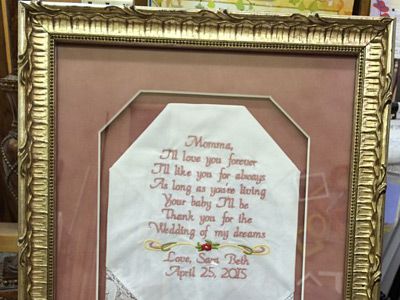 Momma,
I'll love you forever
I'll like you for always
As long as you're living
Your baby I'll be
Thank you for the
Wedding of my dreams
Love, Sara Beth
April 25, 2015